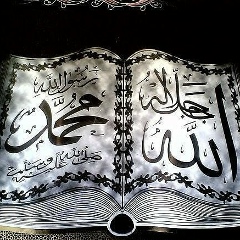 الله
جل جلاله
رسول الله
محمد
صلى الله عليه وسلم